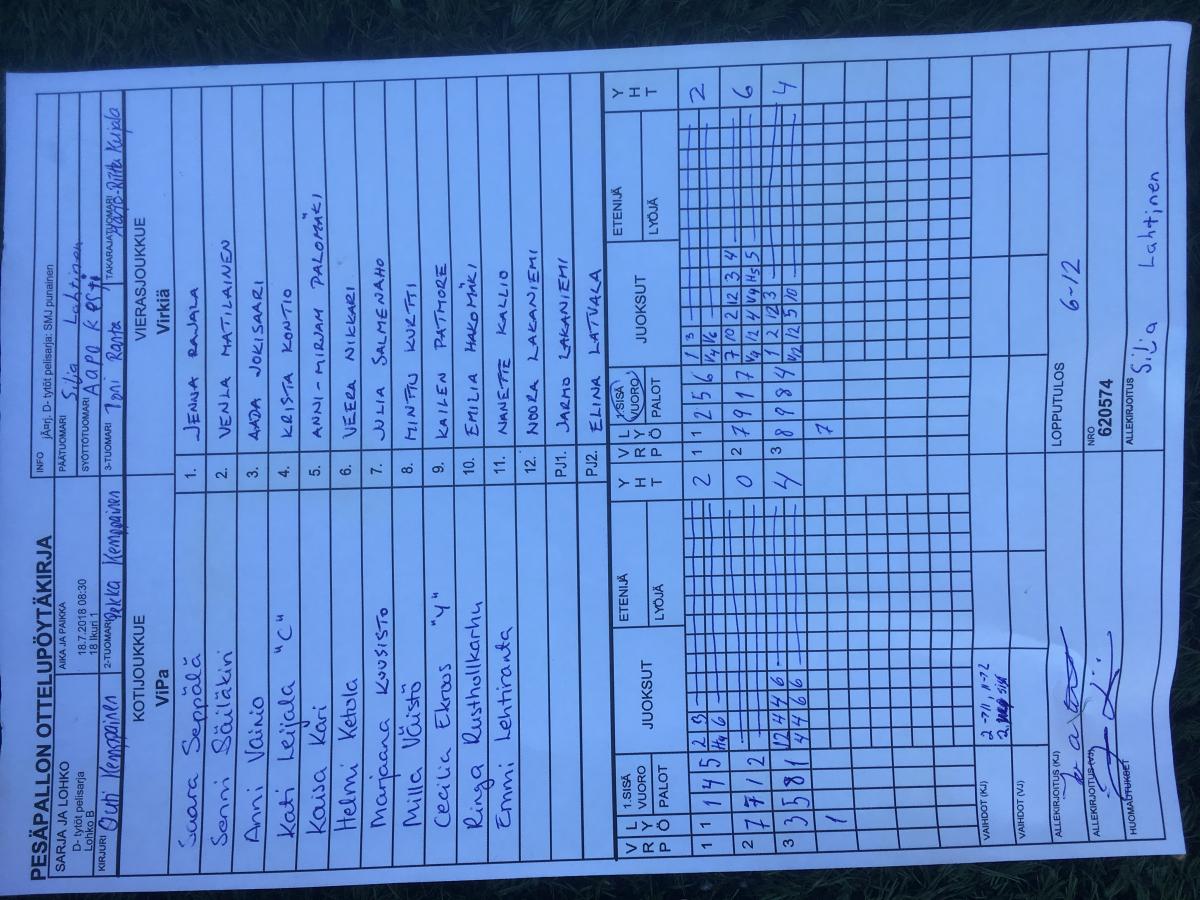 PESÄPALLON OTTELUPÖYTÄKIRJA
SARJA JA LOHKO
D- tytöt pelisarja
Lohko B
AIKA JA PAIKKA
18.7.2018 08:30
18 Ikuri 1
INFO
jÄrrj. D- tytöt pelisarja: SMJ punainen
PÄÄTUOMARI Silja Lahtinen
SYÖTTÖTUOMARI
KIRJURI Outi Kemppainen
2-TUOMARI Pekka Kemppainen
3-TUOMARI Toni Ranta
TAKARAJATUOMARI
KOTIJOUKKUE
ViPa
VIERASJOUKKUE
Virkiä
Suara Seppälä 1. JENNA RAJALA
Sanni Säiläkin 2. VENLA MATILAINEN
Anni Vainio 3. AADA JOKISAARI
Kati Leijala "C" 4. KRISTA KONTIO
Kaisa Kari 5. ANNI-MIRJAM PALOMÄKI
Helmi Ketola 6. VEERA NIKKARI
Marjaana KUUSISTO 7. JULIA SALMENAHO
Milla Väistö 8. MINTTU KURTTI
Cecilia Ekroos "Y" 9. KAILEN PATMORE
Ringa Rusthollkarhu 10. EMILIA HAKOMÄKI
Emmi Lehtiranta 11. NANETTE KALLIO
12. NOORA LAKANIEMI
PJ1. JARMO LAKANIEMI
PJ2. ELINA LATVALA
V R P L Y Ö 1.SISÄ VUORO PALOT JUOKSUT ETENIJÄ LYÖJÄ Y H T
V R P L Y Ö 1.SISÄ VUORO PALOT JUOKSUT ETENIJÄ LYÖJÄ Y H T
1 1 1 4 5 2 3 2
1 1 2 5 6 1 3 2
2 7 7 1 2 0
2 7 9 1 7 7 10 2 12 3 4 6
3 3 5 8 1 12 4 4 6 4
4 4 6 6
3 8 9 8 4 1 2 12 3 4
1
7
VAIHDOT (KJ)
VAIHDOT (VJ)
ALLEKIRJOITUS (KJ)
LOPPUTULOS 6-12
ALLEKIRJOITUS (VJ)
NRO
620574
HUOMAUTUKSET
ALLEKIRJOITUS Silja Lahtinen